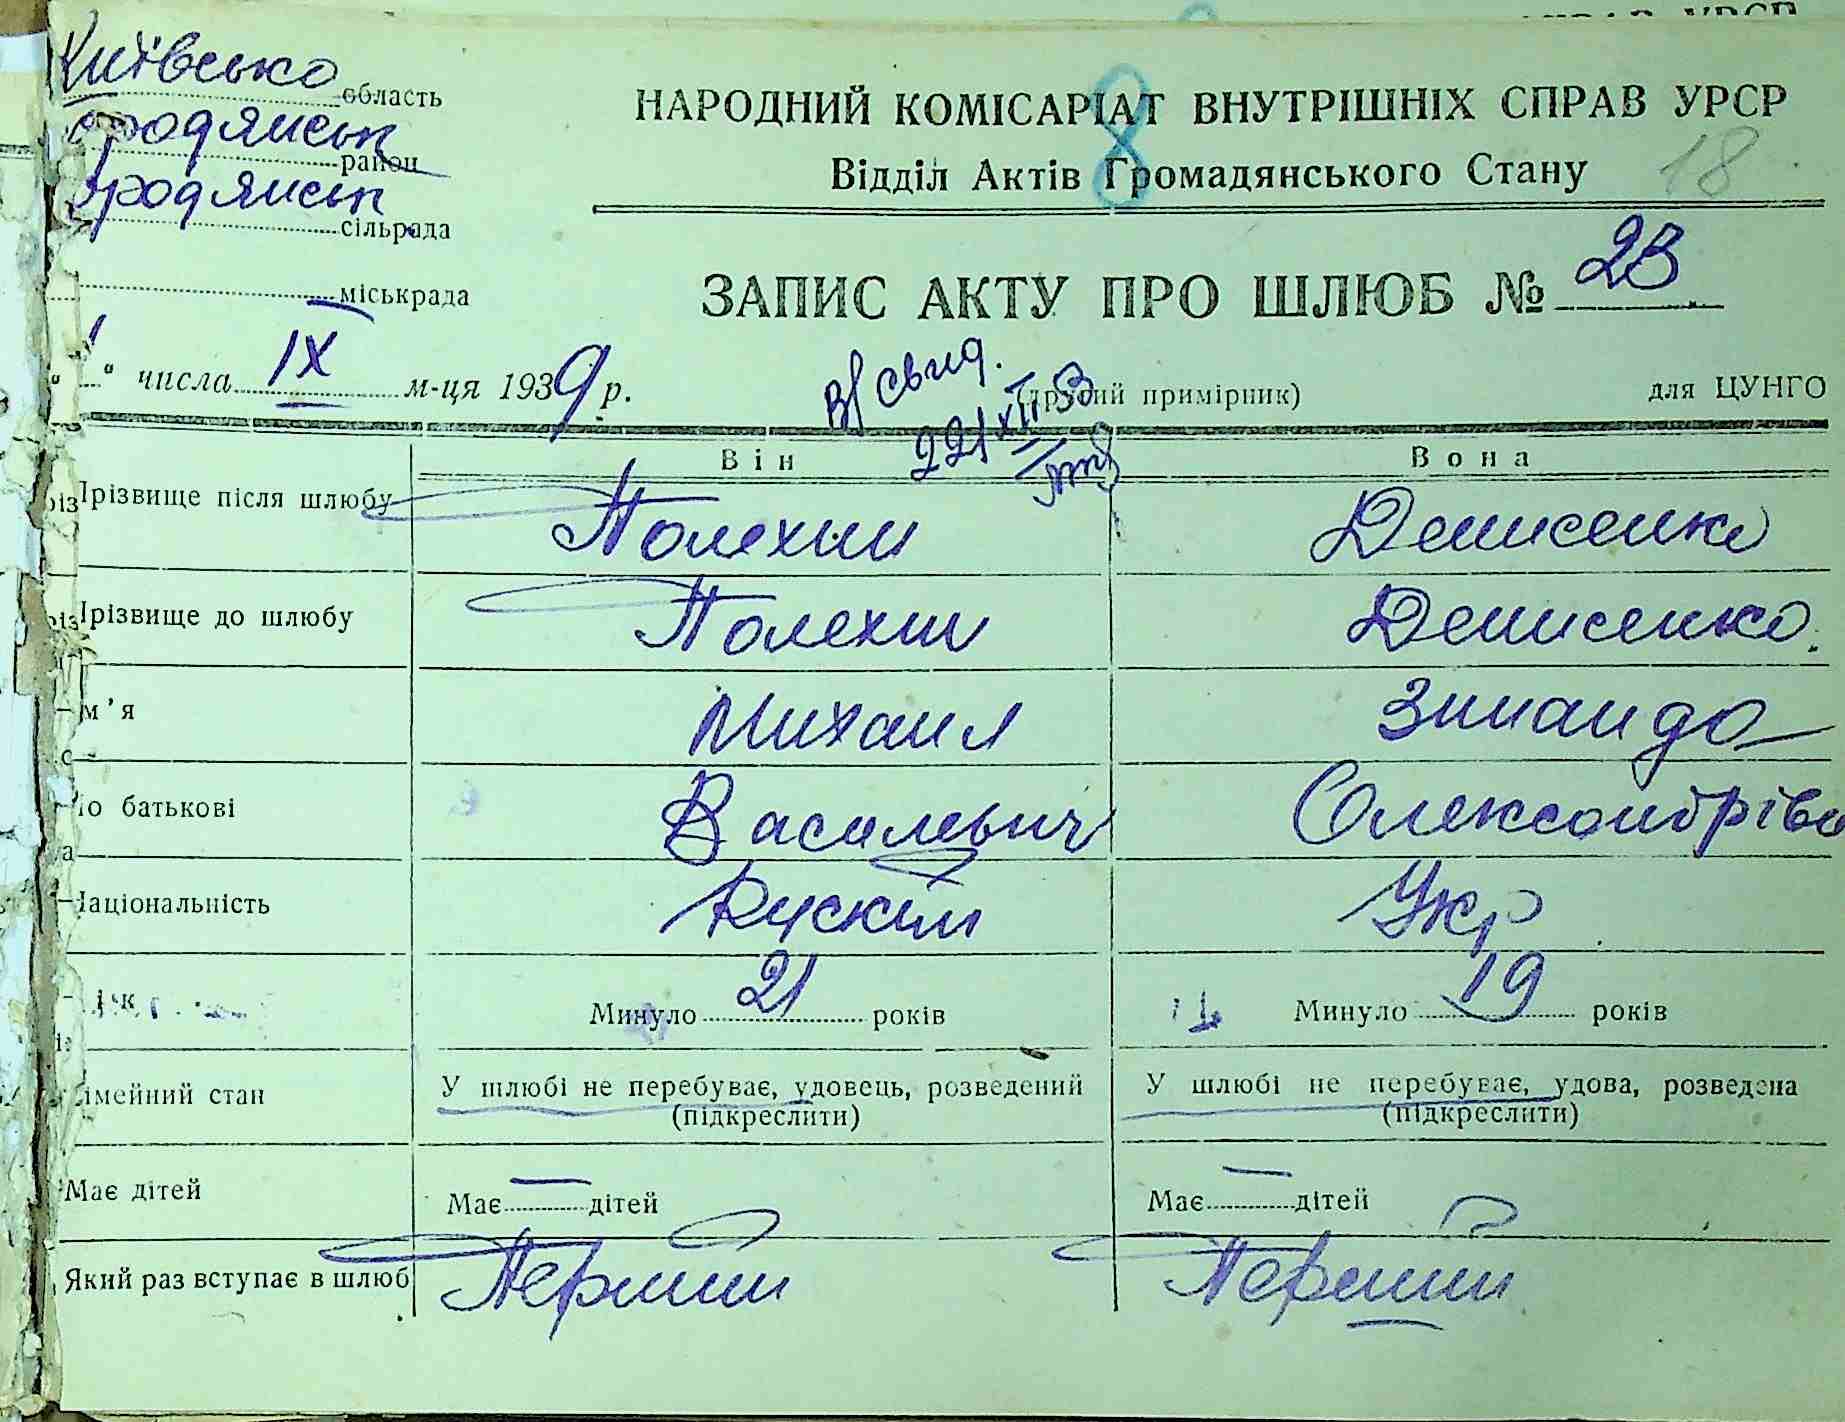 Київсько область
НАРОДНИЙ КОМІСАРІАТ ВНУТРІШНІХ СПРАВ УРСР
8
родянськ район
Відділ Актів Громадянського Стану
18
родянськ сільрада
міськрада
ЗАПИС АКТУ ПРО ШЛЮБ № 23
" числа IX м-ця 1939 р.
(другий примірник)
для ЦУНГО
Він Вона
Прізвище після шлюбу Полехин Денисенко
Прізвище до шлюбу Полехин Денисенко.
м'я Михаил Зинаида
По батькові Василевич Олександрівн
Національність Руский Укр
Вік Минуло 21 років Минуло 19 років
імейний стан У шлюбі не перебуває, удовець, розведений У шлюбі не перебуває, удова, розведена
(підкреслити) (підкреслити)
Має дітей Має — дітей Має — дітей
Який раз вступає в шлюб Перший Перший